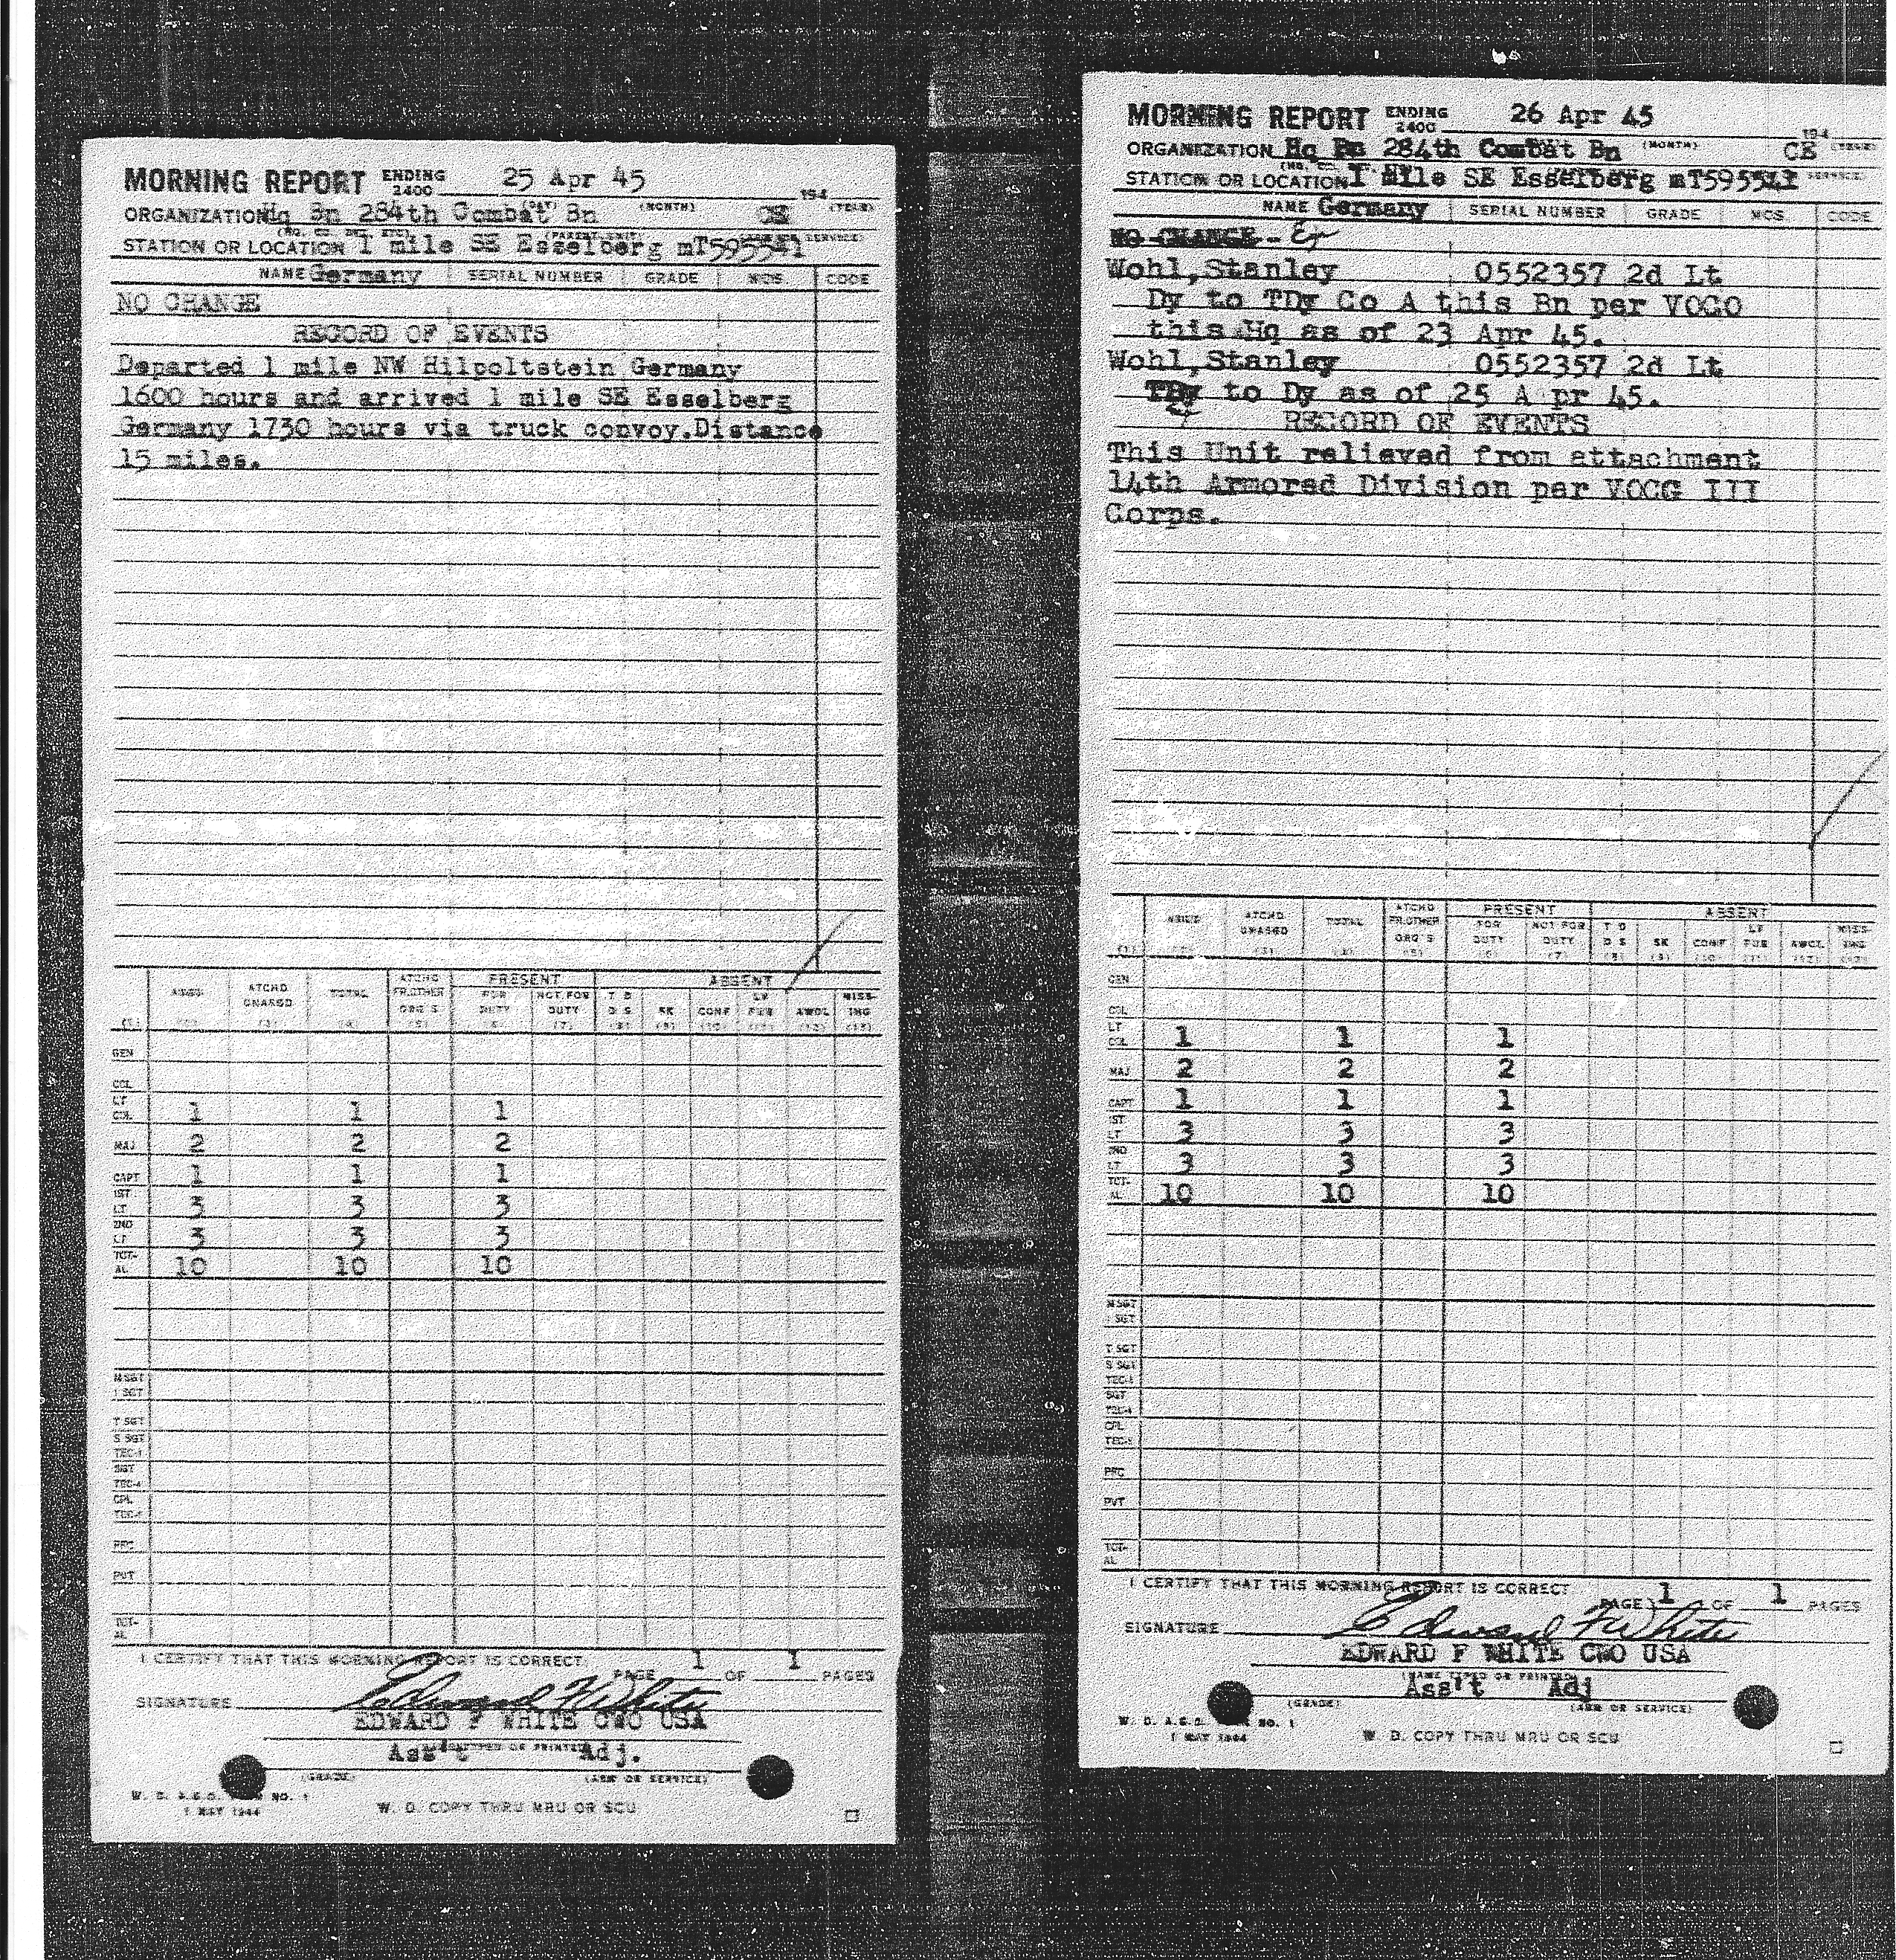 MORNING REPORT ENDING 2400 25 Apr 45 194
(DAY) (MONTH) (YEAR)
ORGANIZATION Hq Bn 284th Combat Bn CE
STATION OR LOCATION 1 mile SE Esselberg mT595541
NAME Germany SERIAL NUMBER GRADE MOS. CODE
NO CHANGE
RECORD OF EVENTS
Departed 1 mile NW Hilpoltstein Germany
1600 hours and arrived 1 mile SE Esselberg
Germany 1730 hours via truck convoy.Distance
15 miles.
ATCHD PRESENT ABSENT
ASGD ATCHD UNASGD TOTAL FR.OTHER ORG'S FOR DUTY NOT FOR DUTY T D D S SK CONF LV FUR AWOL MISS-ING
GEN
COL
LT COL 1 1 1
MAJ 2 2 2
CAPT 1 1 1
1ST LT 3 3 3
2ND LT 3 3 3
TOT-AL 10 10 10
M SGT
1 SGT
T SGT
S SGT
TEC-3
SGT
TEC-4
CPL
TEC-5
PFC
PVT
TOT-AL
I CERTIFY THAT THIS MORNING REPORT IS CORRECT
PAGE 1 OF 1 PAGES
SIGNATURE Edward F White
EDWARD F WHITE CWO USA
(NAME TYPED OR PRINTED)
Ass't Adj.
(GRADE) (ARM OR SERVICE)
W. D. A.G.O. NO. 1
1 MAY 1944 W. D. COPY THRU MRU OR SCU
MORNING REPORT ENDING 2400 26 Apr 45 194
ORGANIZATION Hq Bn 284th Combat Bn (MONTH) CE (YEAR)
STATION OR LOCATION 1 Mile SE Esselberg mT595541
NAME Germany SERIAL NUMBER GRADE MOS. CODE
NO CHANGE
Wohl,Stanley 0552357 2d Lt
Dy to TDy Co A this Bn per VOCO
this Hq as of 23 Apr 45.
Wohl,Stanley 0552357 2d Lt
TDy to Dy as of 25 A pr 45.
RECORD OF EVENTS
This Unit relieved from attachment
14th Armored Division per VOCG III
Corps.
ATCHD PRESENT ABSENT
ASGD ATCHD UNASGD TOTAL FR.OTHER ORG'S FOR DUTY NOT FOR DUTY T D D S SK CONF LV FUR AWOL MISS-ING
GEN
COL
LT COL 1 1 1
MAJ 2 2 2
CAPT 1 1 1
1ST LT 3 3 3
2ND LT 3 3 3
TOT-AL 10 10 10
M SGT
1 SGT
T SGT
S SGT
TEC-3
SGT
TEC-4
CPL
TEC-5
PFC
PVT
TOT-AL
I CERTIFY THAT THIS MORNING REPORT IS CORRECT
PAGE 1 OF 1 PAGES
SIGNATURE Edward F White
EDWARD F WHITE CWO USA
(NAME TYPED OR PRINTED)
Ass't Adj
(GRADE) (ARM OR SERVICE)
W. D. A.G.O. NO. 1
1 MAY 1944 W. D. COPY THRU MRU OR SCU